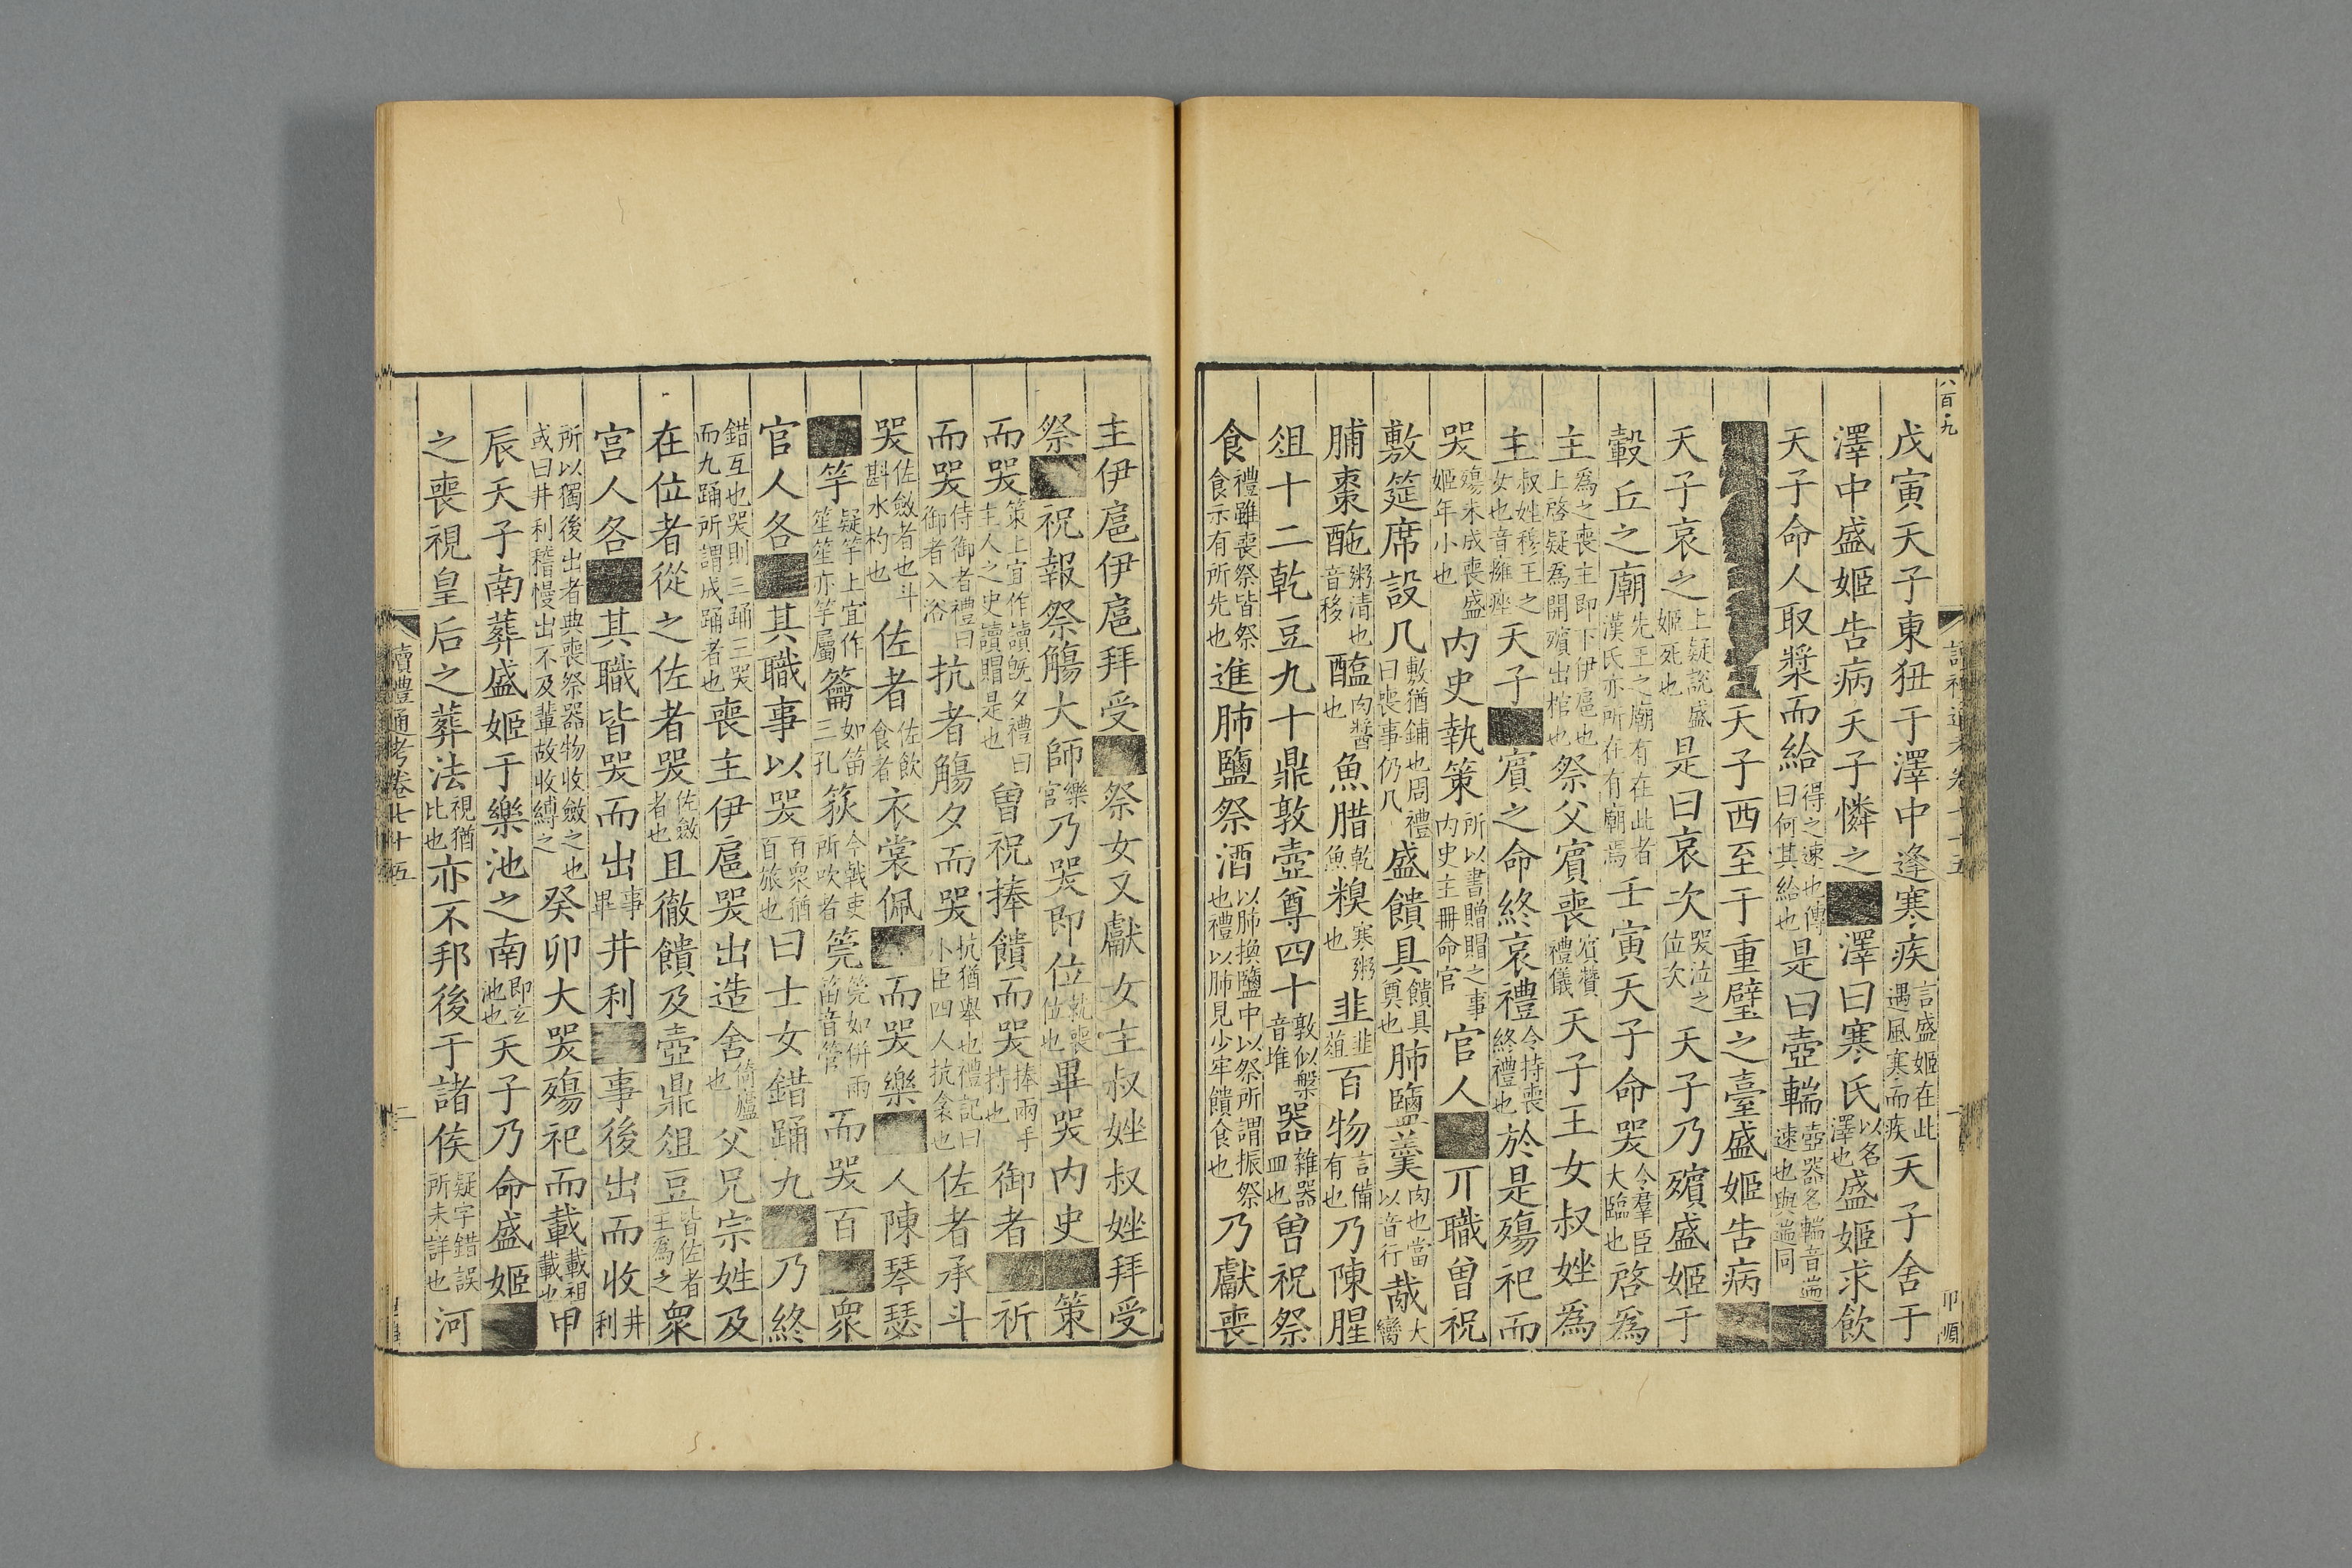 八百九
戊寅天子東狃于澤中逢寒疾言盛姬在此遇風寒而疾天子舍于
澤中盛姬告病天子憐之■澤曰寒氏以名澤也盛姬求飲
天子命人取漿而給得之速也傳曰何其給也是曰壺輲壺器名輲音遄速也與遄同■
■天子西至于重璧之臺盛姬告病■
天子哀之上疑說盛姬死也是曰哀次哭泣之位次天子乃殯盛姬于
轂丘之廟先王之廟有在此者漢氏亦所在有廟焉壬寅天子命哭令羣臣大臨也啓爲
主爲之喪主即下伊扈也上啓疑爲開殯出棺也祭父賓喪賓贊禮儀天子王女叔姓爲
主叔姓穆王之女也音癰痤天子■賓之命終哀禮令持喪終禮也於是殤祀而
哭殤未成喪盛姬年小也內史執策所以書贈賵之事內史主冊命官官人■丌職曾祝
敷筵席設几敷猶鋪也周禮曰喪事仍几盛饋具饋具奠也肺鹽羹肉也當以音行胾大臠
脯棗酏粥清也音移醢肉醬也魚腊乾魚糗寒粥也韭韭葅百物言備有也乃陳腥
俎十二乾豆九十鼎敦壺尊四十敦似盤音堆器雜器皿也曾祝祭
食禮雖喪祭皆祭食示有所先也進肺鹽祭酒以肺換鹽中以祭所謂振祭也禮以肺見少牢饋食也乃獻喪
主伊扈伊扈拜受■祭女又獻女主叔姓叔姓拜受
祭■祝報祭觴大師樂官乃哭即位就喪位也畢哭內史■策
而哭策上宜作讀旣夕禮曰主人之史讀賵是也曾祝捧饋而哭捧兩手持也御者■祈
而哭侍御者禮曰御者入浴抗者觴夕而哭抗猶舉也禮記曰小臣四人抗衾也佐者承斗
哭佐斂者也斗斟水杓也佐者佐飲食者衣裳佩■而哭樂■人陳琴瑟
■竽疑竽上宜作笙笙亦竽屬籥如笛三孔篍今戟吏所吹者筦筦如併兩笛音管而哭百■衆
官人各■其職事以哭百衆猶百族也曰士女錯踊九■乃終
錯互也哭則三踊三哭而九踊所謂成踊者也喪主伊扈哭出造舍倚廬也父兄宗姓及
在位者從之佐者哭佐斂者也且徹饋及壺鼎俎豆皆佐者主爲之衆
宮人各■其職皆哭而出事畢井利■事後出而收井利
所以獨後出者典喪祭器物收斂之也或曰井利稽慢出不及輩故收縛之癸卯大哭殤祀而載載祖載也甲
辰天子南葬盛姬于樂池之南即玄池也天子乃命盛姬■
之喪視皇后之葬法視猶比也亦不邦後于諸侯疑字錯誤所未詳也河
讀禮通考卷七十五
二